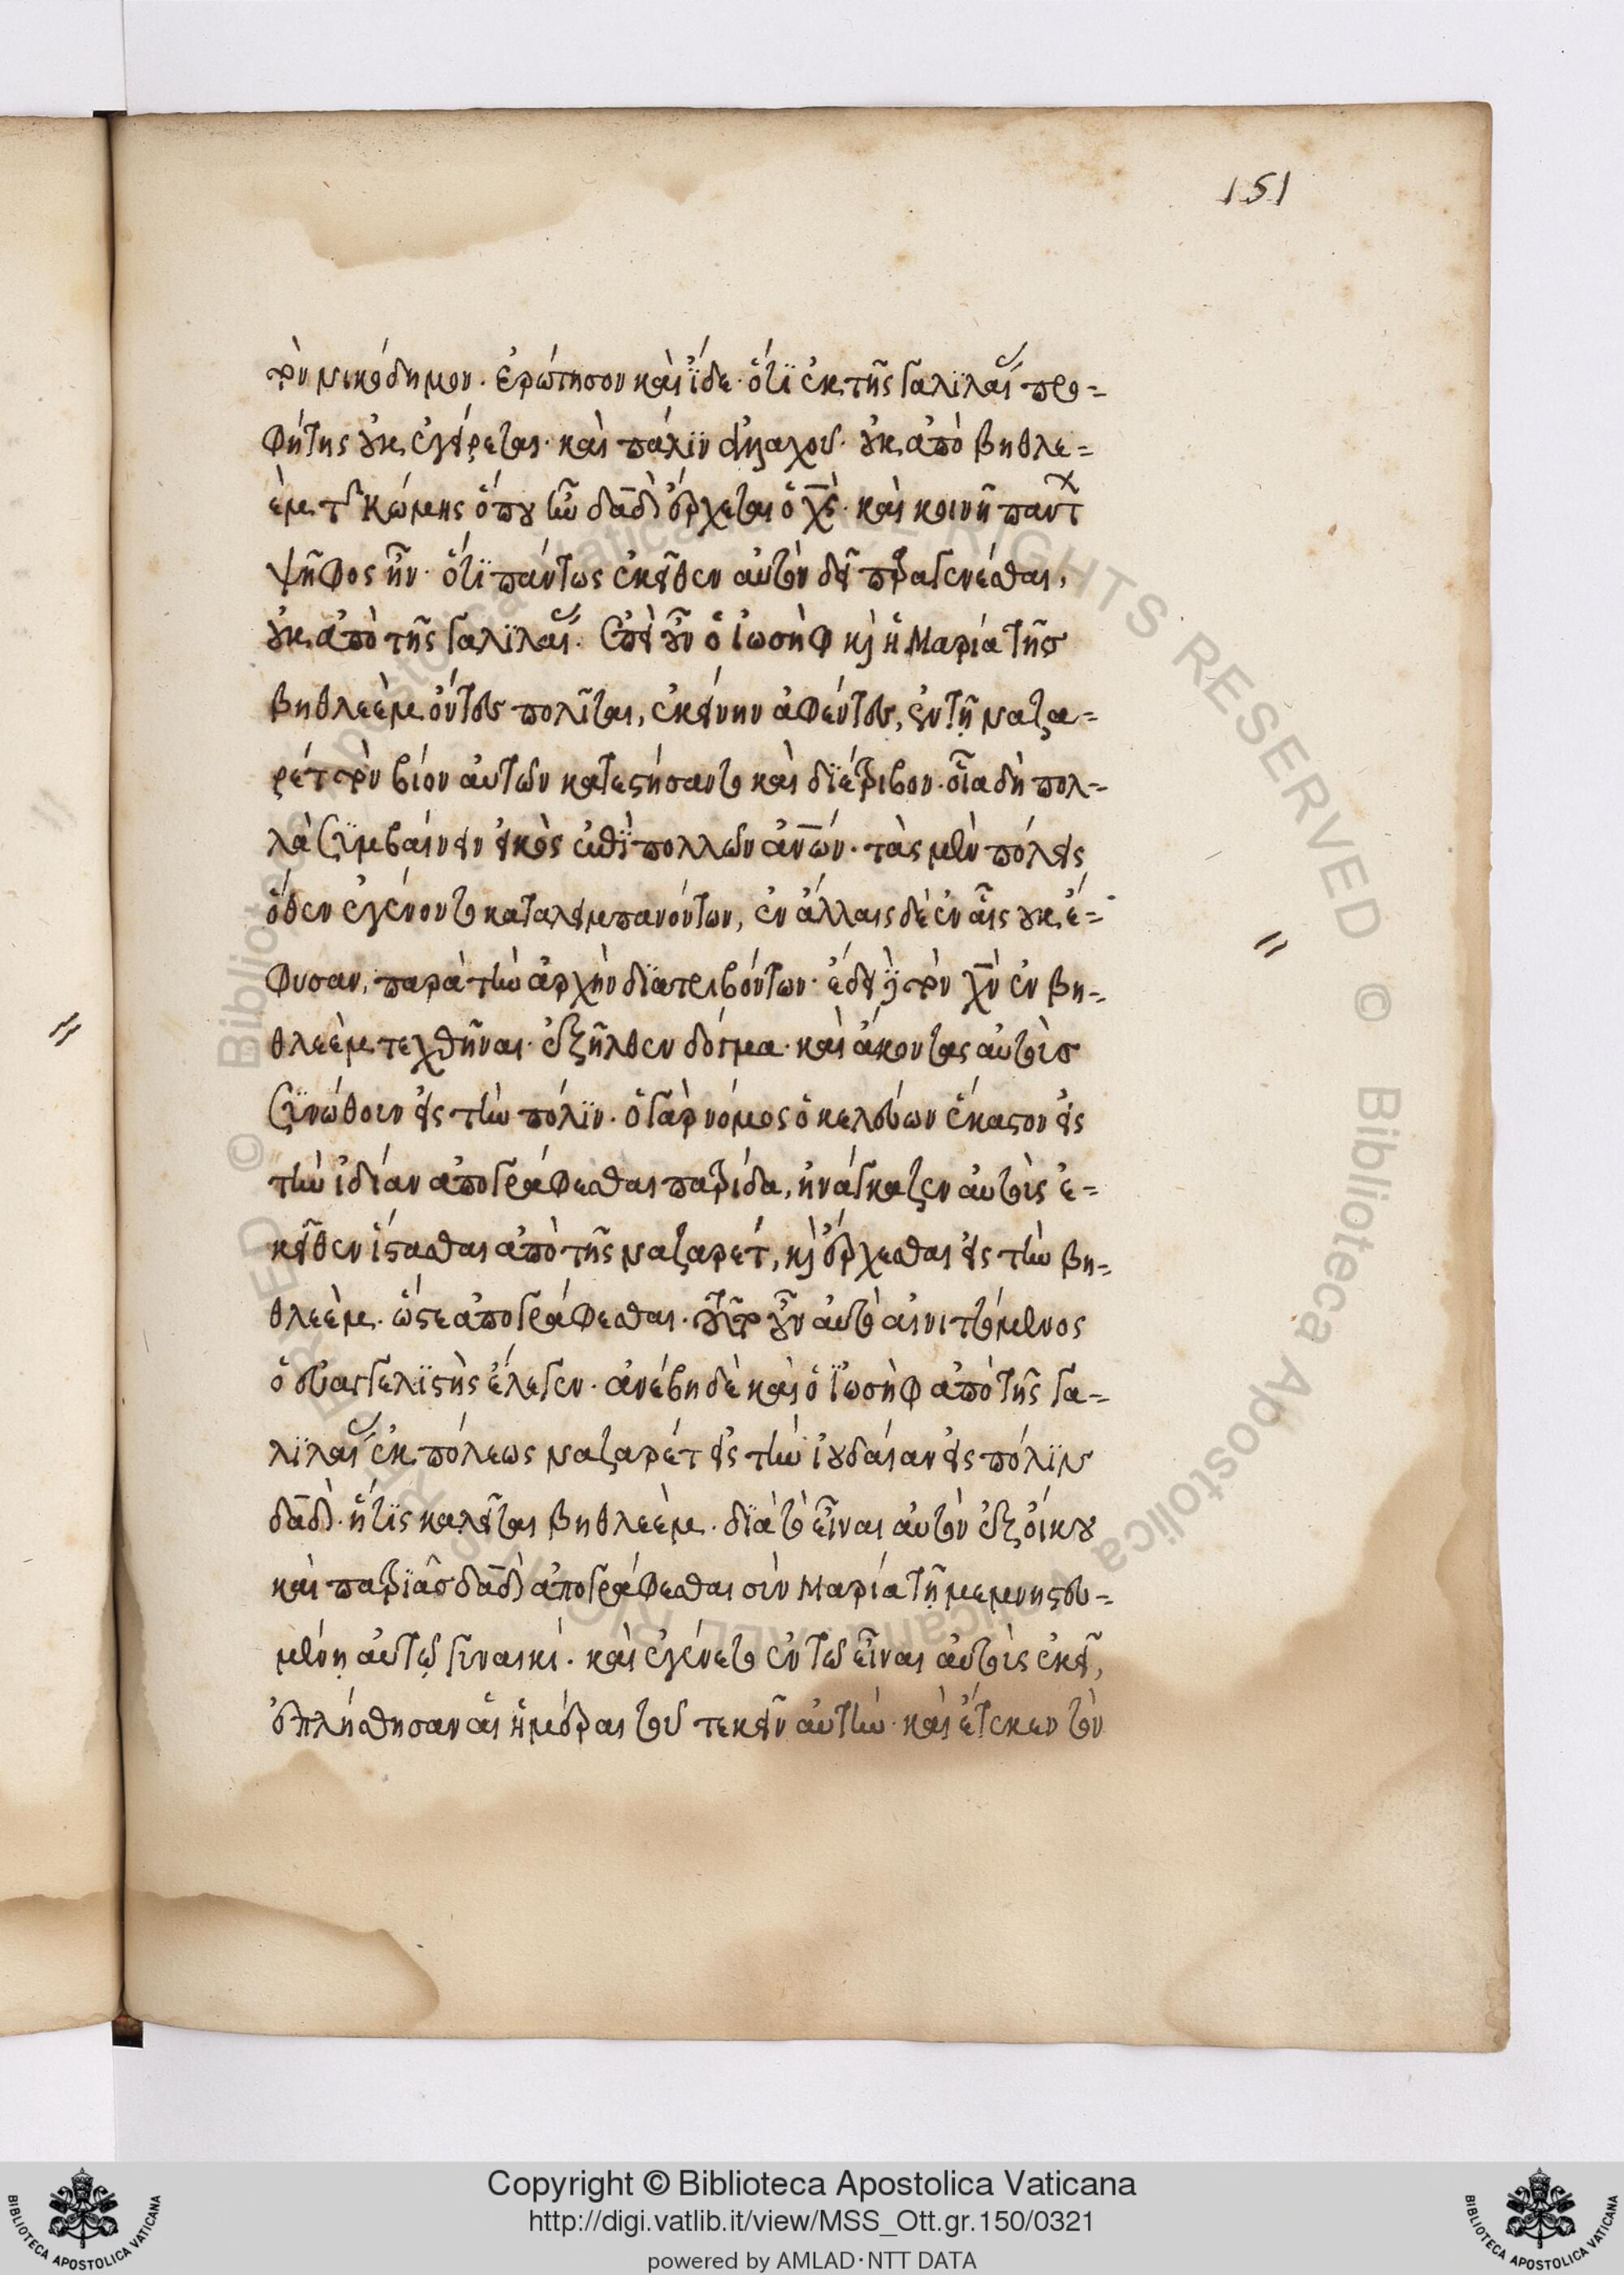 151
τὸν νικόδημον. ἐρώτησον καὶ ἴδε· ὅτϊ ἐκ τῆς γαλϊλαί προ=
φήτης οὐκ ἐγείρεται· καὶ πάλϊν ἀλλαχοῦ· οὐκ ἀπὸ βηθλε=
ὲμ τ κώμης ὅπου ἦν δᾱδ ἔρχεται ὁ χς· καὶ κοινὴ παντ
ψῆφος ἦν· ὅτϊ πάντως ἐκεῖθεν αὐτὸν δεῖ παραγενέσθαι,
οὐκ ἀπὸ τῆς γαλϊλαί. ἐπεὶ οὖν ὁ ἰωσὴφ κὶ ἡ Μαρία τῆς
βηθλεὲμ ὄντες πολῖται, ἐκείνην ἀφέντες, ἐν τῇ ναζα=
ρέτ τὸν βίον αὐτῶν κατεστήσαντο καὶ δϊέτριβον. οἷα δὴ πολ=
λὰ συμβαίνειν εἰκὸς ἐπὶ πολλῶν ἀνῶν. τὰς μὲν πόλεις
ὅθεν ἐγένοντο καταλειμπανόντων, ἐν ἄλλαις δὲ ἐν αἷς οὐκ ἔ=
φυσαν, παρὰ τὴν ἀρχὴν δϊατριβόντων· ἔδει τὸν χν ἐν βη=
θλεὲμ τεχθῆναι· ἐξῆλθεν δόγμα· καὶ ἄκοντας αὐτοὺς
συνώθουν εἰς τὴν πόλϊν. ὁ γὰρ νόμος ὁ κελεύων ἕκαστον εἰς
τὴν ἰδίαν ἀπογράφεσθαι πατρίδα, ἠνάγκαζεν αὐτοὺς ἐ=
κεῖθεν ἵστασθαι ἀπὸ τῆς ναζαρέτ, κὶ ἔρχεσθαι εἰς τὴν βη=
θλεὲμ. ὥστε ἀπογράφεσθαι. οὖν αὐτὸ αἰνιττόμενος
ὁ εὐαγγελϊστὴς ἔλεγεν· ἀνέβη δὲ καὶ ὁ ἰωσὴφ ἀπὸ τῆς γα=
λϊλαί ἐκ πόλεως ναζαρέτ εἰς τὴν ἰουδαίαν εἰς πόλϊν
δᾱδ· ἥτϊς καλεῖται βηθλεὲμ. δϊὰ τὸ εἶναι αὐτὸν ἐξ οἴκου
καὶ πατρϊᾶς δᾱδ ἀπογράφεσθαι σὺν Μαρία τῇ μεμνηστευ=
μένῃ αὐτῷ γυναικί. καὶ ἐγένετο ἐν τῶ εἶναι αὐτοὺς ἐκεῖ,
ἐπλήσθησαν αἱ ἡμέραι τοῦ τεκεῖν αὐτὴν· καὶ ἔτεκεν τὸν
Copyright © Biblioteca Apostolica Vaticana
http://digi.vatlib.it/view/MSS_Ott.gr.150/0321
powered by AMLAD·NTT DATA